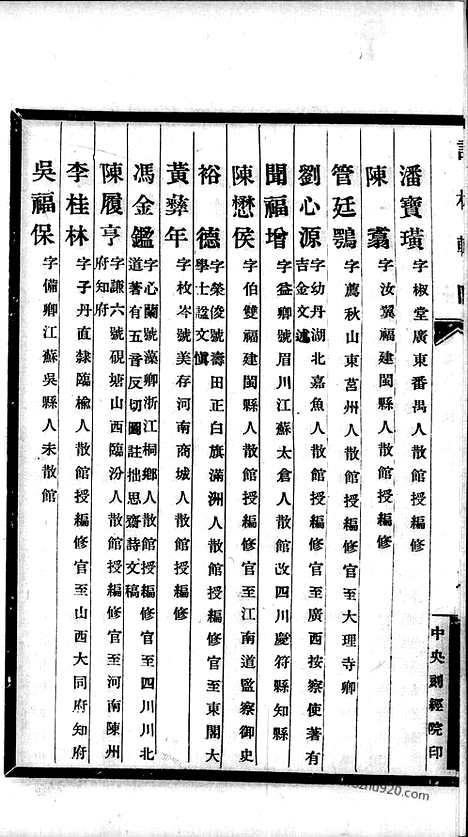 潘寶璜 字椒堂廣東番禺人散館授編修
陳翥 字汝翼福建閩縣人散館授編修
管廷鶚 字薦秋山東莒州人散館授編修官至大理寺卿
劉心源 字幼丹湖北嘉魚人散館授編修官至廣西按察使著有
吉金文述
聞福增 字益卿號眉川江蘇太倉人散館改四川慶符縣知縣
陳懋侯 字伯雙福建閩縣人散館授編修官至江南道監察御史
裕德 字榮俊號壽田正白旗滿洲人散館授編修官至東閣大
學士諡文慎
黃彝年 字枚岑號美存河南商城人散館授編修
馮金鑑 字心蘭號藻卿浙江桐鄉人散館授編修官至四川川北
道著有五音反切圖註拙思齋詩文稿
陳履亨 字謙六號硯塘山西臨汾人散館授編修官至河南陳州
府知府
李桂林 字子丹直隸臨榆人散館授編修官至山西大同府知府
吳福保 字備卿江蘇吳縣人未散館
中央刻經院印